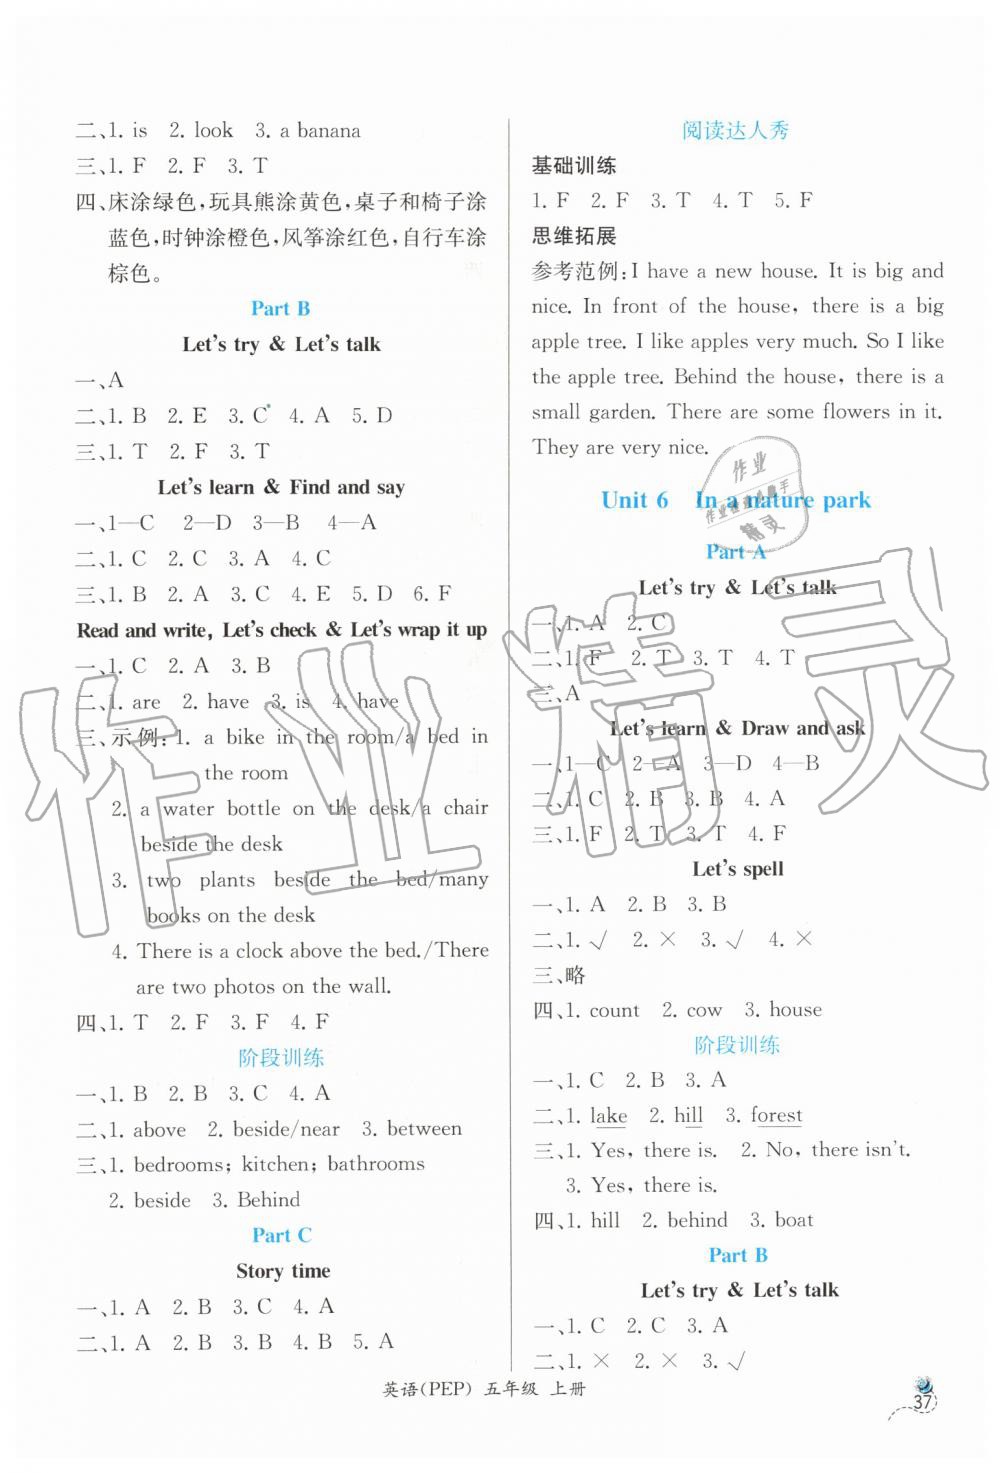 二、1. is 2. look 3. a banana
三、1. F 2. F 3. T
四、床涂绿色,玩具熊涂黄色,桌子和椅子涂
蓝色,时钟涂橙色,风筝涂红色,自行车涂
棕色。
Part B
Let's try & Let's talk
一、A
二、1. B 2. E 3. C 4. A 5. D
三、1. T 2. F 3. T
Let's learn & Find and say
一、1—C 2—D 3—B 4—A
二、1. C 2. C 3. A 4. C
三、1. B 2. A 3. C 4. E 5. D 6. F
Read and write, Let's check & Let's wrap it up
一、1. C 2. A 3. B
二、1. are 2. have 3. is 4. have
三、示例:1. a bike in the room/a bed in
the room
2. a water bottle on the desk/a chair
beside the desk
3. two plants beside the bed/many
books on the desk
4. There is a clock above the bed./There
are two photos on the wall.
四、1. T 2. F 3. F 4. F
阶段训练
一、1. B 2. B 3. C 4. A
二、1. above 2. beside/near 3. between
三、1. bedrooms; kitchen; bathrooms
2. beside 3. Behind
Part C
Story time
一、1. A 2. B 3. C 4. A
二、1. A 2. B 3. B 4. B 5. A
阅读达人秀
基础训练
1. F 2. F 3. T 4. T 5. F
思维拓展
参考范例:I have a new house. It is big and
nice. In front of the house, there is a big
apple tree. I like apples very much. So I like
the apple tree. Behind the house, there is a
small garden. There are some flowers in it.
They are very nice.
Unit 6 In a nature park
Part A
Let's try & Let's talk
一、1. A 2. C
二、1. F 2. T 3. T 4. T
三、A
Let's learn & Draw and ask
一、1—C 2—A 3—D 4—B
二、1. C 2. B 3. B 4. A
三、1. F 2. T 3. T 4. F
Let's spell
一、1. A 2. B 3. B
二、1. √ 2. × 3. √ 4. ×
三、略
四、1. count 2. cow 3. house
阶段训练
一、1. C 2. B 3. A
二、1. lake 2. hill 3. forest
三、1. Yes, there is. 2. No, there isn't.
3. Yes, there is.
四、1. hill 2. behind 3. boat
Part B
Let's try & Let's talk
一、1. C 2. C 3. A
二、1. × 2. × 3. √
英语(PEP) 五年级 上册
37
作业精灵
作业
精灵